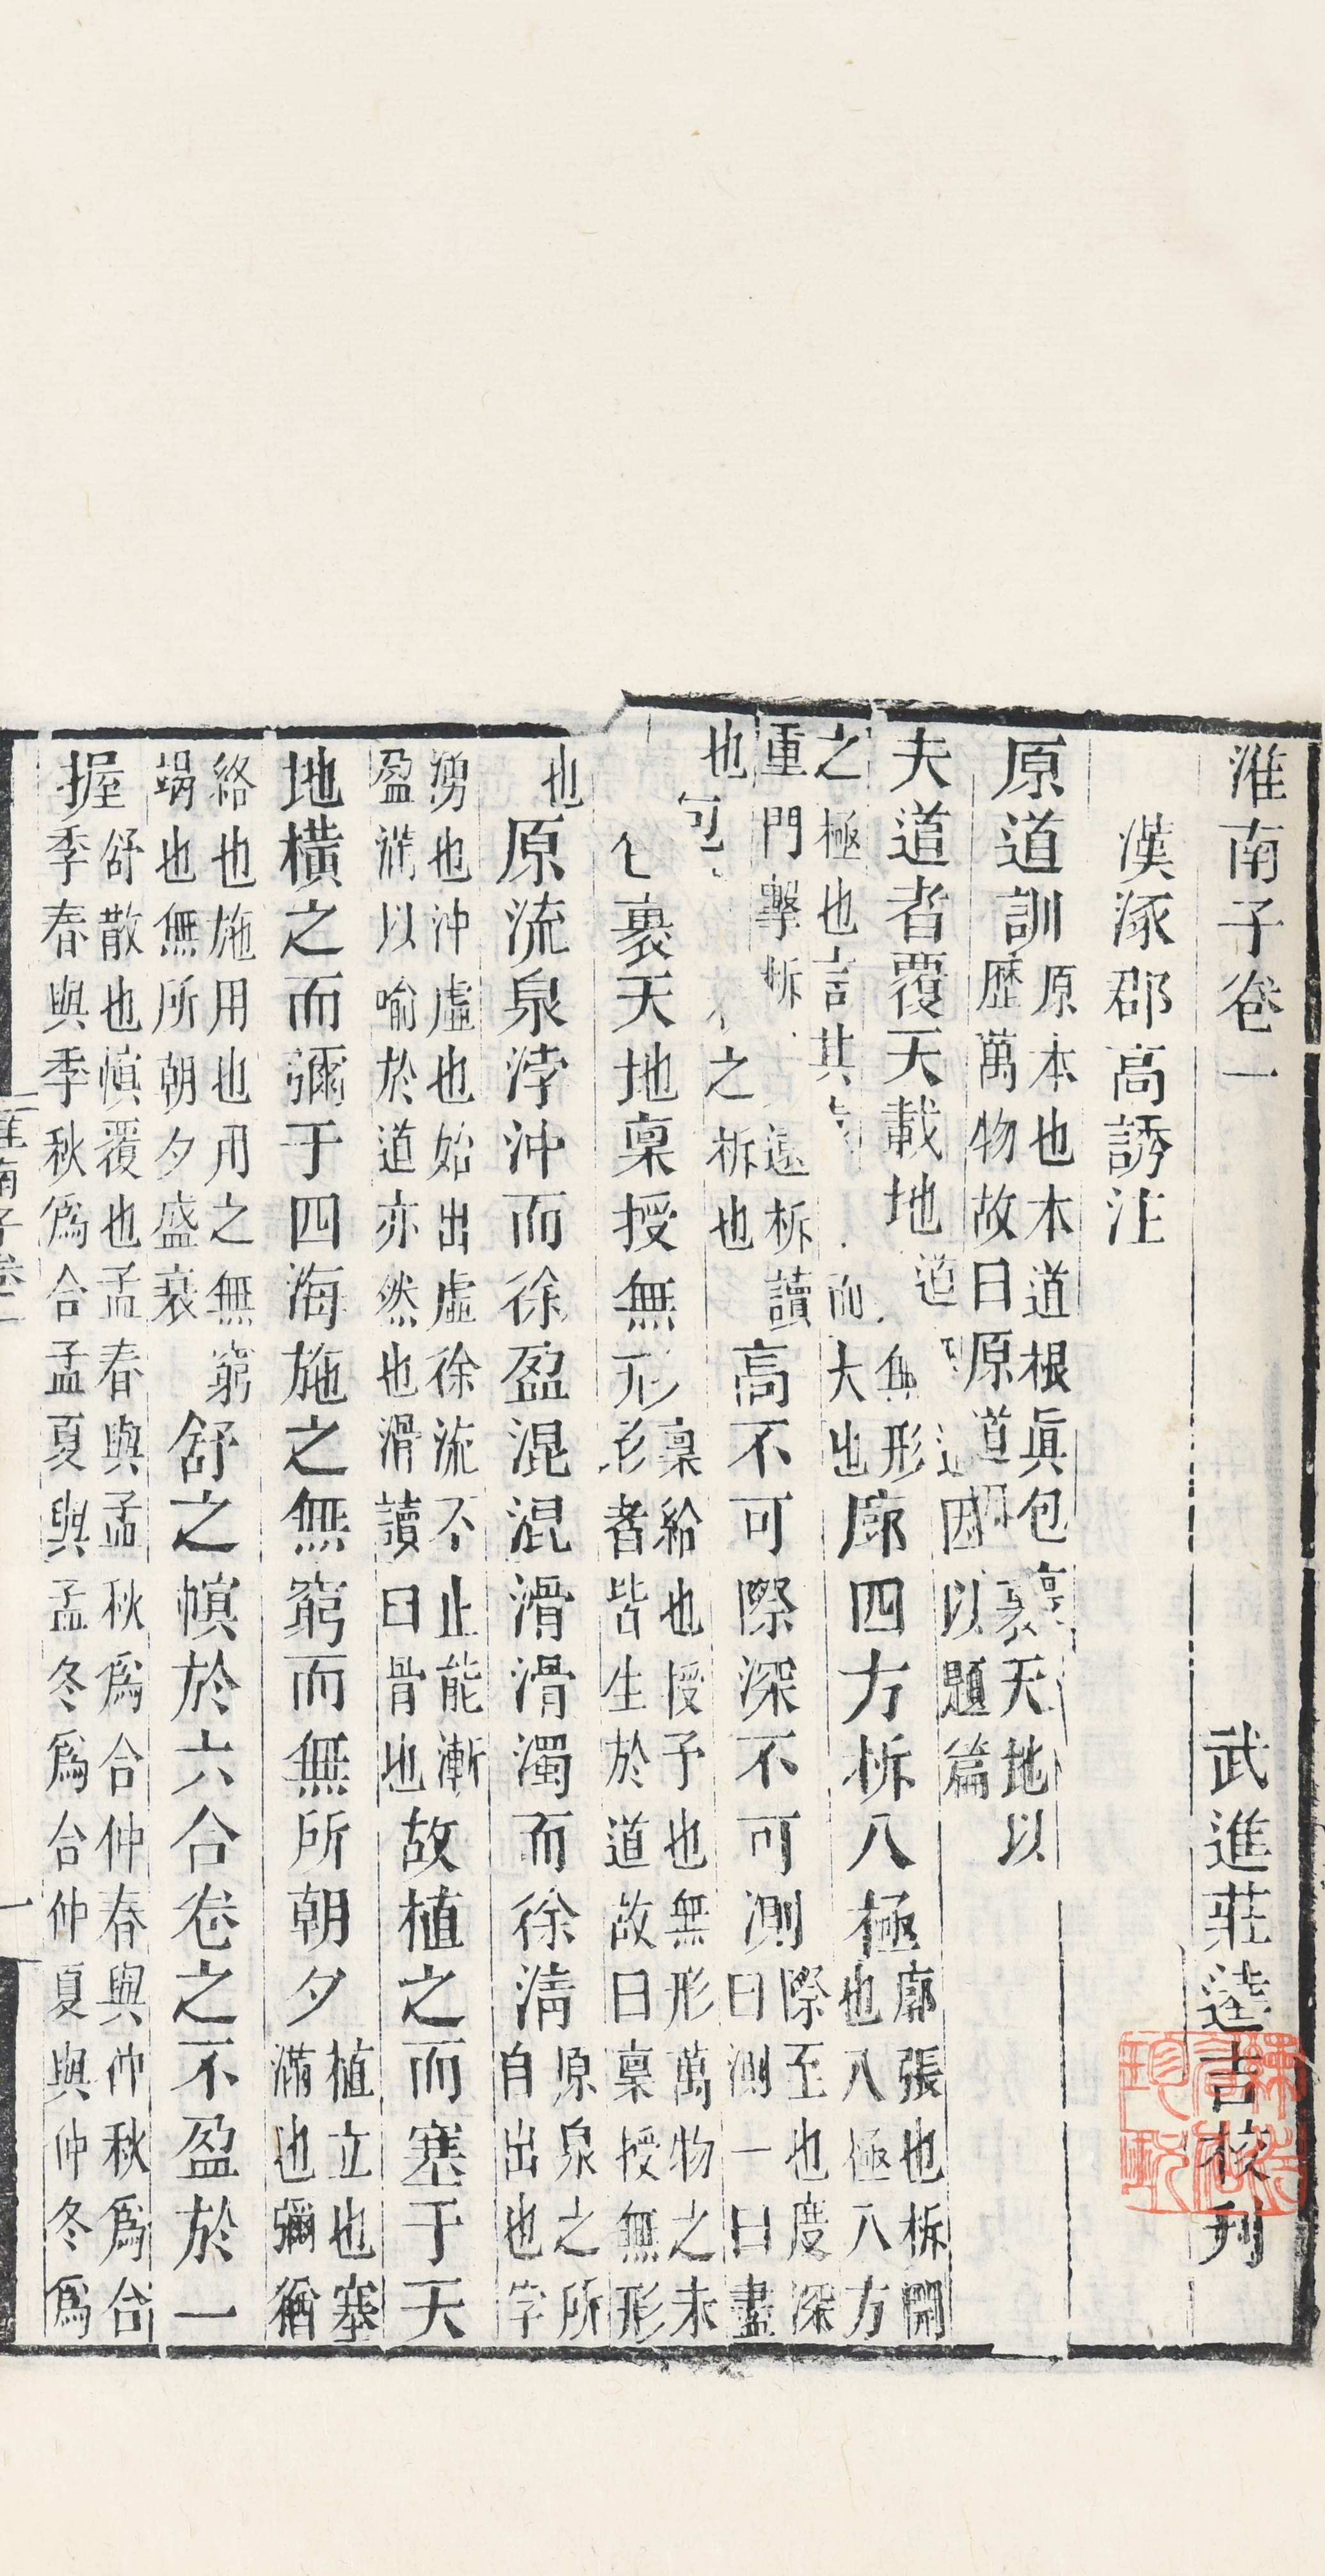 淮南子卷一　武進莊逵吉校刊
漢涿郡高誘注
原道訓原本也本道根眞包裹天地以歷萬物故曰原道因以題篇
夫道者覆天載地道無形而大也廓四方柝八極廓張也柝開也八極八方
之極也言其遠柝讀重門擊柝之柝也高不可際深不可測際至也度深曰測一曰盡
也包裹天地稟授無形稟給也授予也無形萬物之未形者皆生於道故曰稟授無形
也原流泉浡沖而徐盈混混滑滑濁而徐清原泉之所自出也浡
湧也沖虛也始出虛徐流不止能漸盈滿以喻於道亦然也滑讀曰骨也故植之而塞于天
地橫之而彌于四海施之無窮而無所朝夕植立也塞滿也彌猶
絡也施用也用之無窮竭也無所朝夕盛衰舒之幎於六合卷之不盈於一
握舒散也幎覆也孟春與孟秋爲合仲春與仲秋爲合季春與季秋爲合孟夏與孟冬爲合仲夏與仲冬爲
淮南子卷一　一